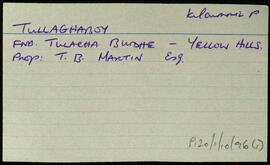 TULLAGHABOY
FND. TULACHA BUIDHE - YELLOW HILLS.
PROP: T. B. MARTIN Esq.
P120/1/10/96(i)